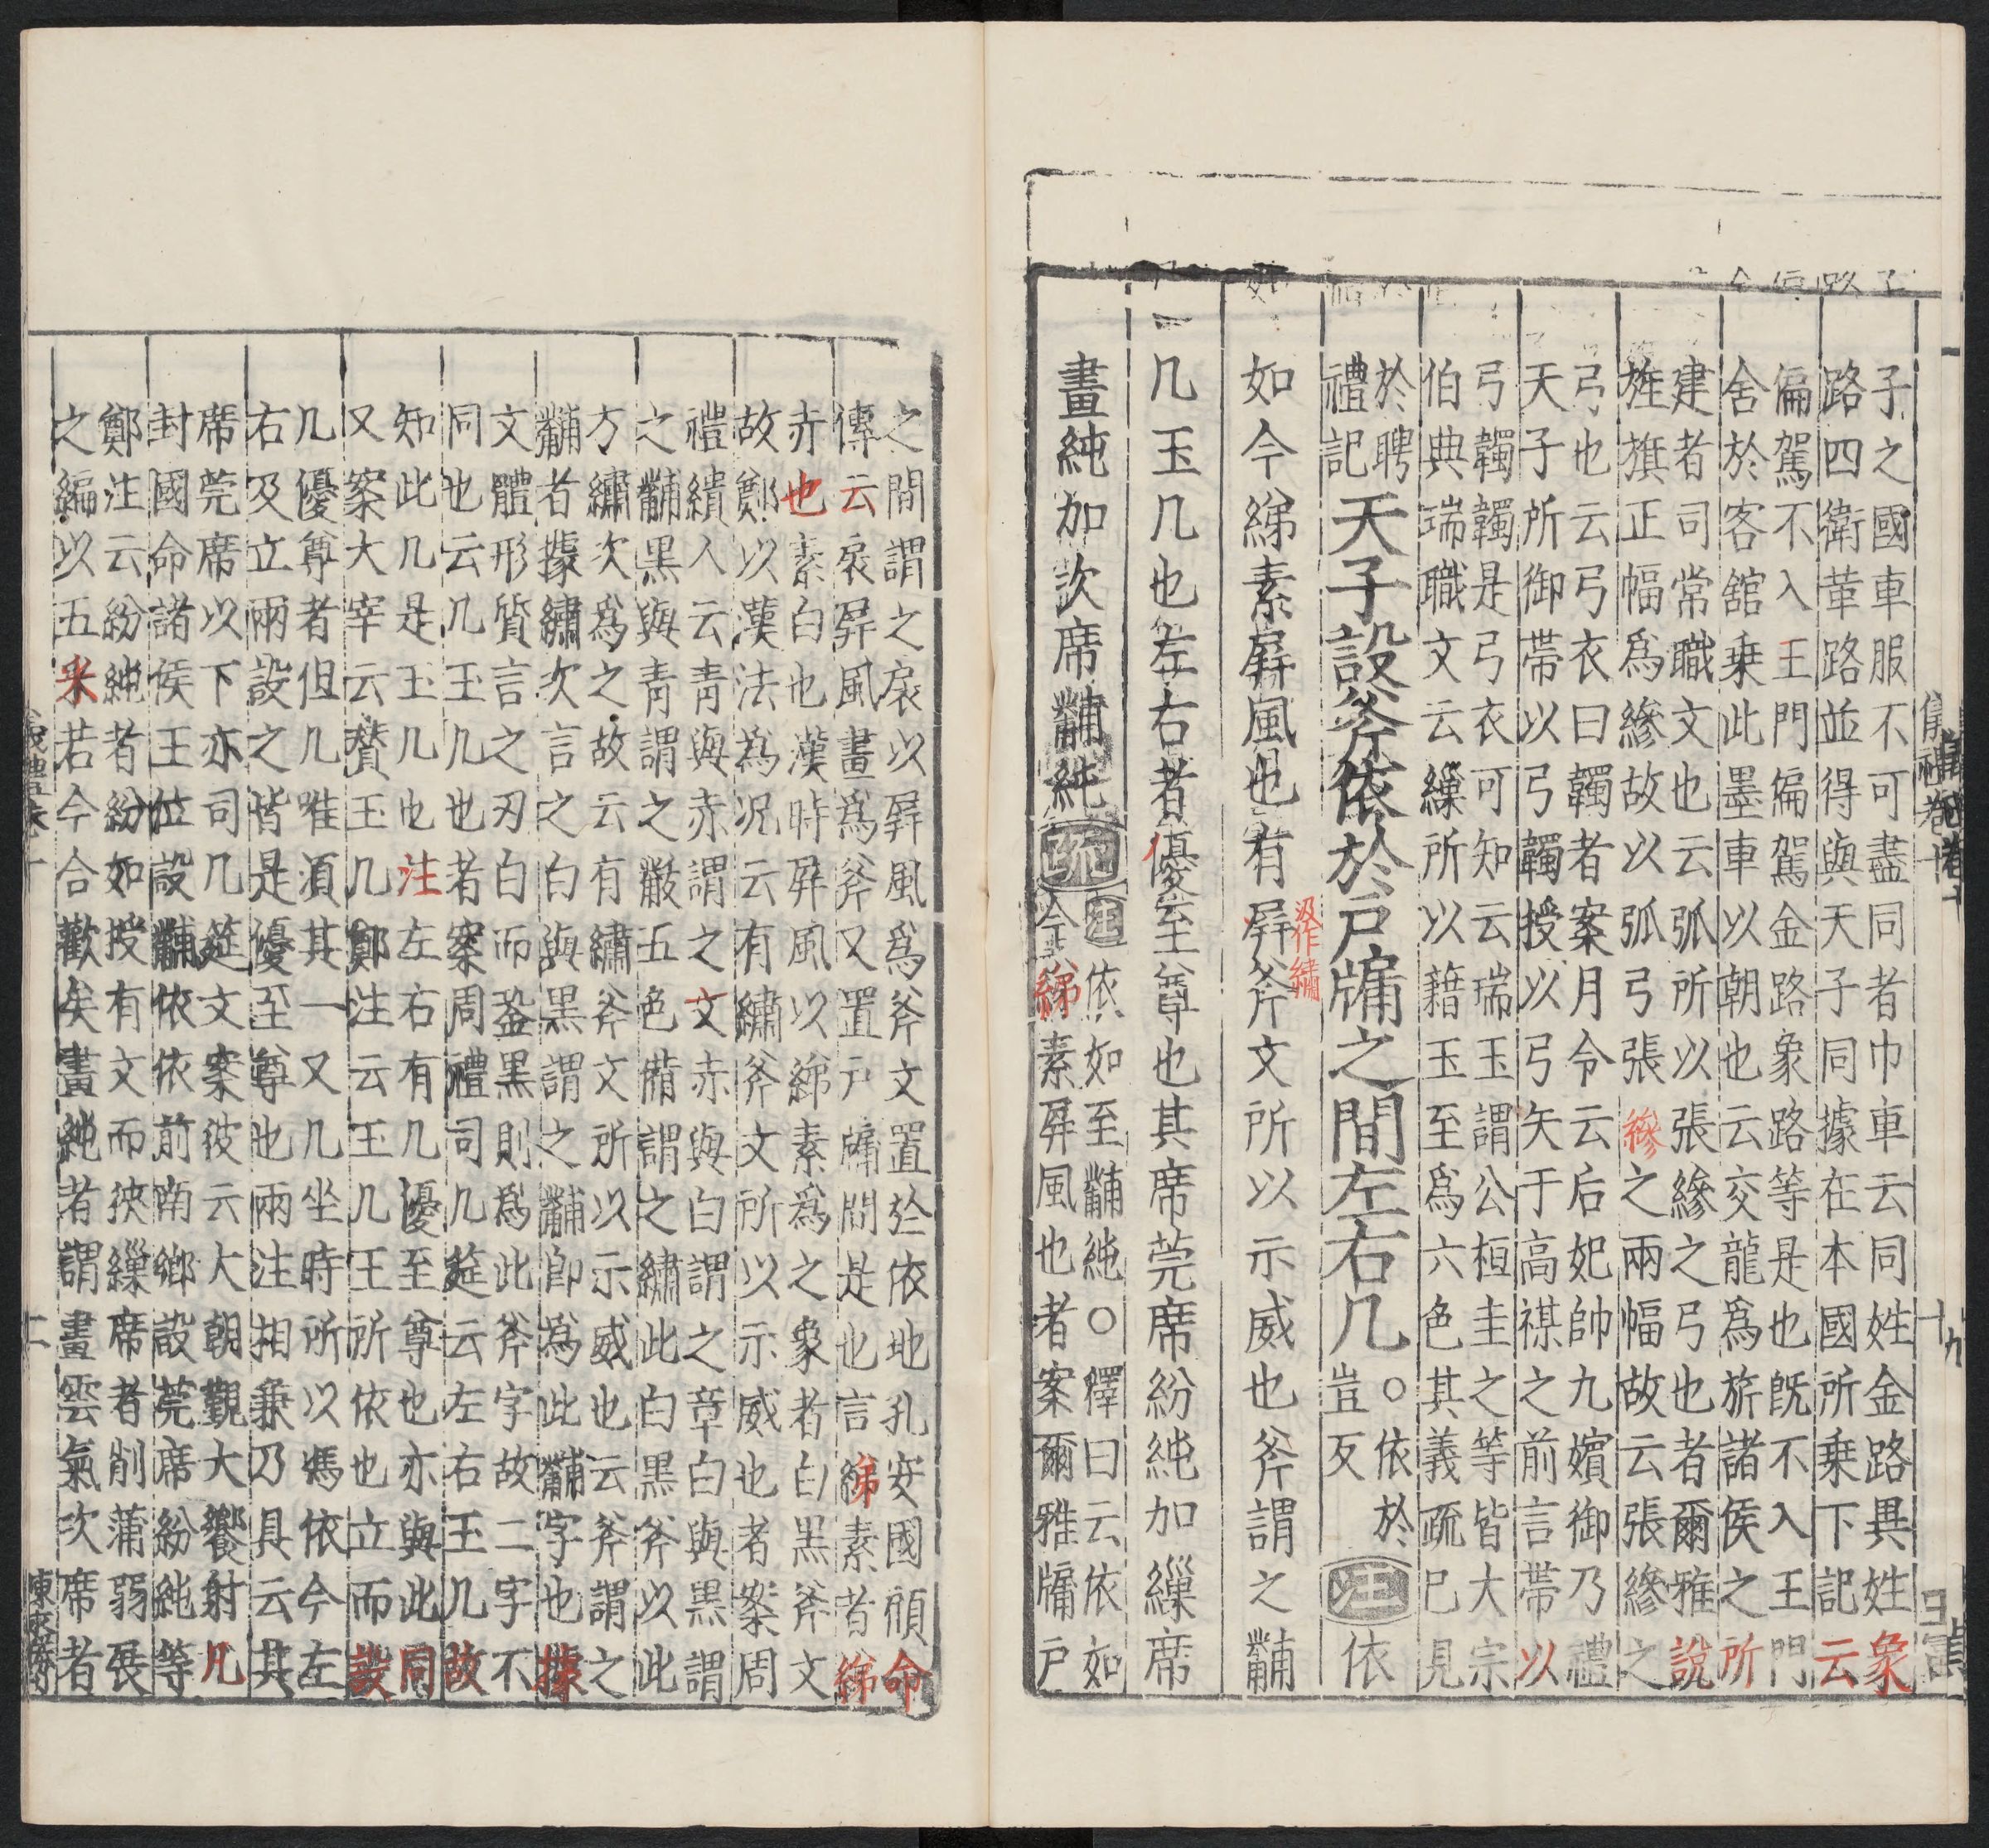 子之國車服不可盡同者巾車云同姓金路異姓象
路四衛革路並得與天子同據在本國所乗下記云
偏駕不入王門偏駕金路象路等是也既不入王門
舍於客舘乗此墨車以朝也云交龍爲旂諸侯之所
建者司常職文也云弧所以張縿之弓也者爾雅說
旌旗正幅爲縿故以弧弓張縿之兩幅故云張縿之
弓也云弓衣曰韣者案月令云后妃帥九嬪御乃禮
天子所御帶以弓韣授以弓矢于高禖之前言帶以
弓韣韣是弓衣可知云瑞玉謂公桓圭之等皆大宗
伯典瑞職文云繅所以藉玉至爲六色其義疏已見
於聘
禮記
天子設斧依於戶牖之間左右几○依於
豈反
注依
如今綈素屏風也有屏斧文所以示威也斧謂之黼
汲作繡
几玉几也左右者優至尊也其席莞席紛純加繅席
畫純加次席黼純疏注依如至黼純○釋曰云依如
今綈素屏風也者案爾雅牖戶
之間謂之扆以屏風爲斧文置於依地孔安國顧命
傳云扆屏風畫爲斧文置戶牖間是也言綈素者綈
赤也素白也漢時屏風以綈素爲之象者白黑斧文
故鄭以漢法爲况云有繡斧文所以示威也者案周
禮繢人云青與赤謂之文赤與白謂之章白與黑謂
之黼黑與青謂之黻五色備謂之繡此白黑斧以此
方繡次爲之故云有繡斧文所以示威也云斧謂之
黼者據繡次言之白與黑謂之黼即爲此黼字也據
文體形質言之刃白而銎黑則爲此斧字故二字不
同也云几玉几也者案周禮司几筵云左右玉几故
知此几是玉几也注左右有几優至尊也亦與此同
又案大宰云贊玉几鄭注云玉几王所依也立而設
几優尊者但几唯須其一又几坐時所以馮依今左
右及立兩設之皆是優至尊也兩注相兼乃具云其
席莞席以下亦司几筵文案彼云大朝覲大饗射凡
封國命諸侯王位設黼依依前南鄉設莞席紛純等
鄭注云紛純者紛如授有文而狹繅席者削蒲蒻張
之編以五采若今合歡矣畫純者謂畫雲氣次席者